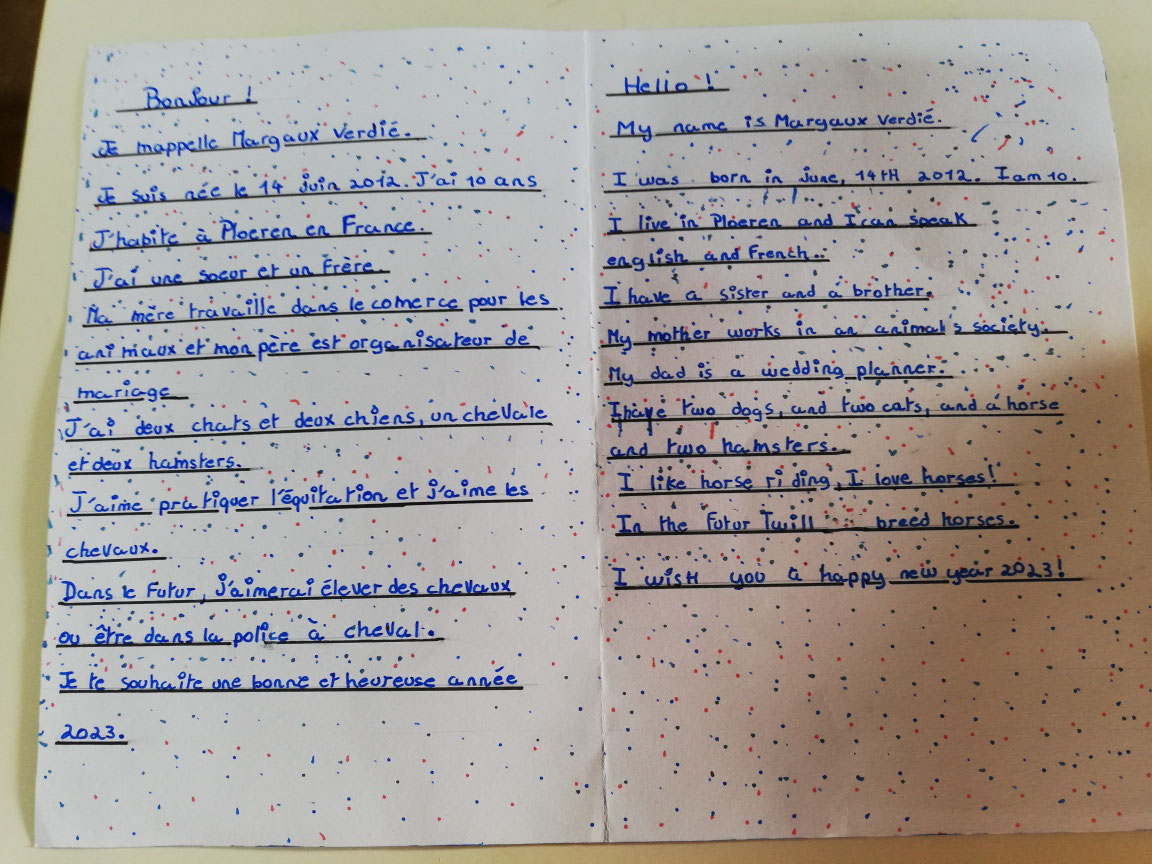 Bonjour !
Je mappelle Margaux Verdié.
Je suis née le 14 juin 2012. J'ai 10 ans
J'habite à Ploeren en France.
J'ai une soeur et un Frère.
Ma mère travaille dans le comerce pour les
animaux et mon père est organisateur de
mariage
J'ai deux chats et deux chiens, un chevale
et deux hamsters.
J'aime pratiquer l'équitation et j'aime les
chevaux.
Dans le Futur, J'aimerai élever des chevaux
ou être dans la police à cheval.
Je te souhaite une bonne et heureuse année
2023.
Hello !
My name is Margaux Verdié.
I was born in june, 14TH 2012. I am 10.
I live in Ploeren and I can speak
english and French..
I have a sister and a brother.
My mother works in an animal's society.
My dad is a wedding planner.
I have two dogs, and two cats, and a horse
and two hamsters.
I like horse riding, I love horses!
In the Futur I will breed horses.
I wish you a happy new year 2023!